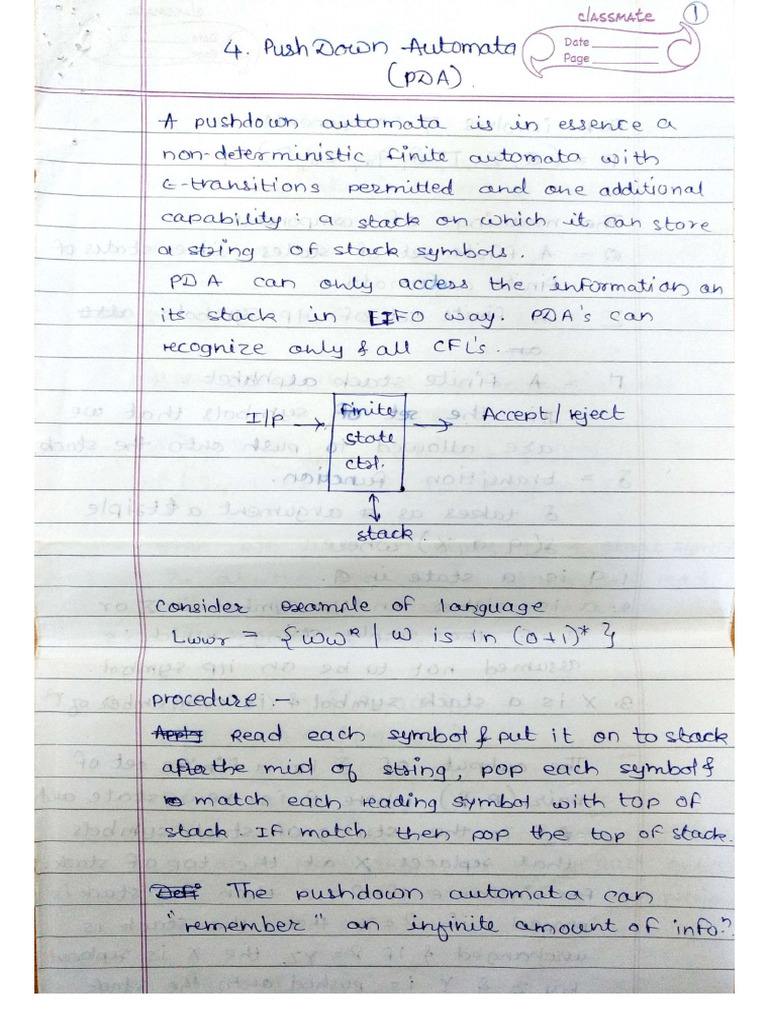 classmate 1
Date
Page
4. PushDown Automata
(PDA).
A pushdown automata is in essence a
non-deterministic finite automata with
ε-transitions permitted and one additional
capability: a stack on which it can store
a string of stack symbols.
PDA can only access the information on
its stack in LIFO way. PDA's can
recognize only & all CFL's.
I/p → Finite → Accept/reject
state
ctrl.
↕
stack.
consider example of language
Lwwr = {wwᴿ | w is in (0+1)* }
procedure :-
Apply Read each symbol & put it on to stack
after the mid of string, pop each symbol &
match each reading symbol with top of
stack. If match then pop the top of stack.
Def: The pushdown automata can
"remember" an infinite amount of info?